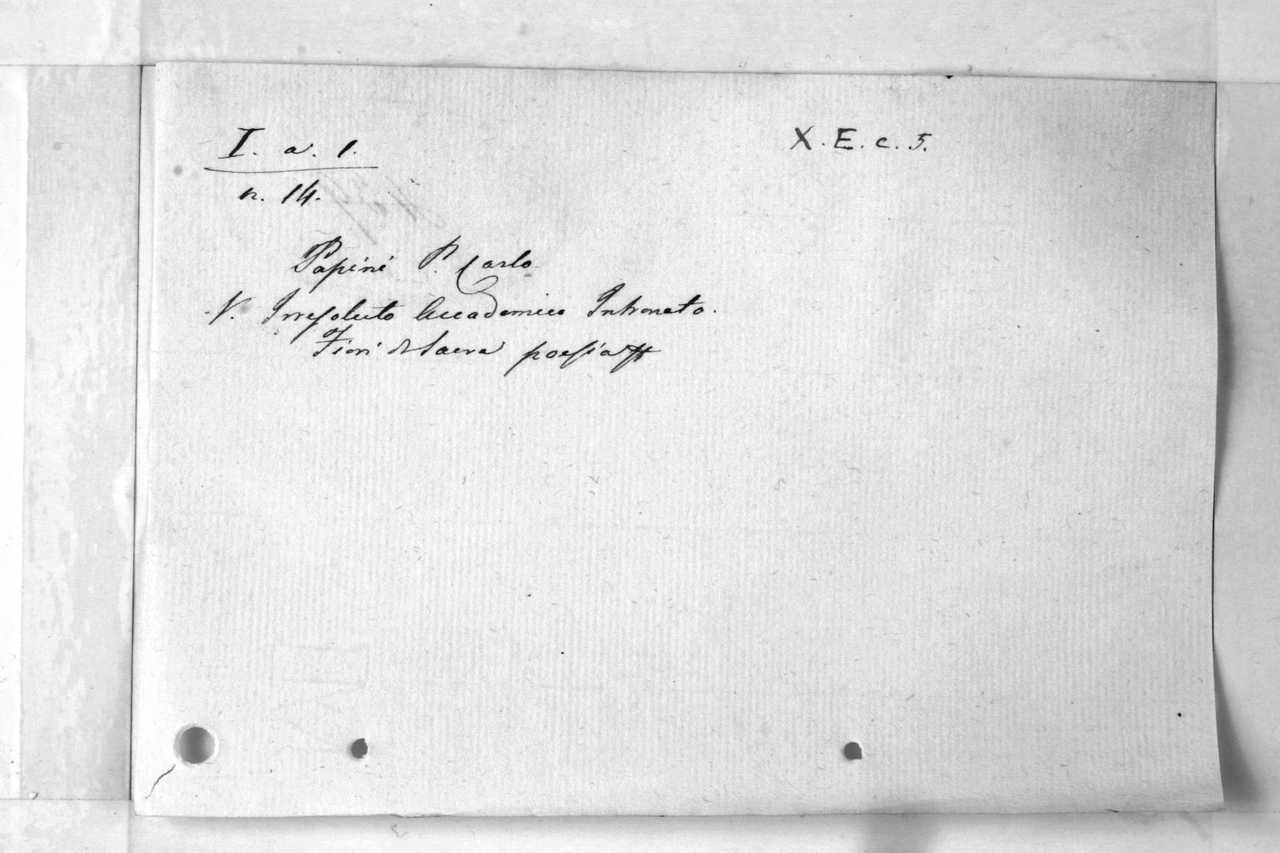 I. a. 1.
X. E. c. 5.
n. 14.
Papini P. Carlo
V. Irresoluto Accademico Intronato.
Fiori di Sacra poesia